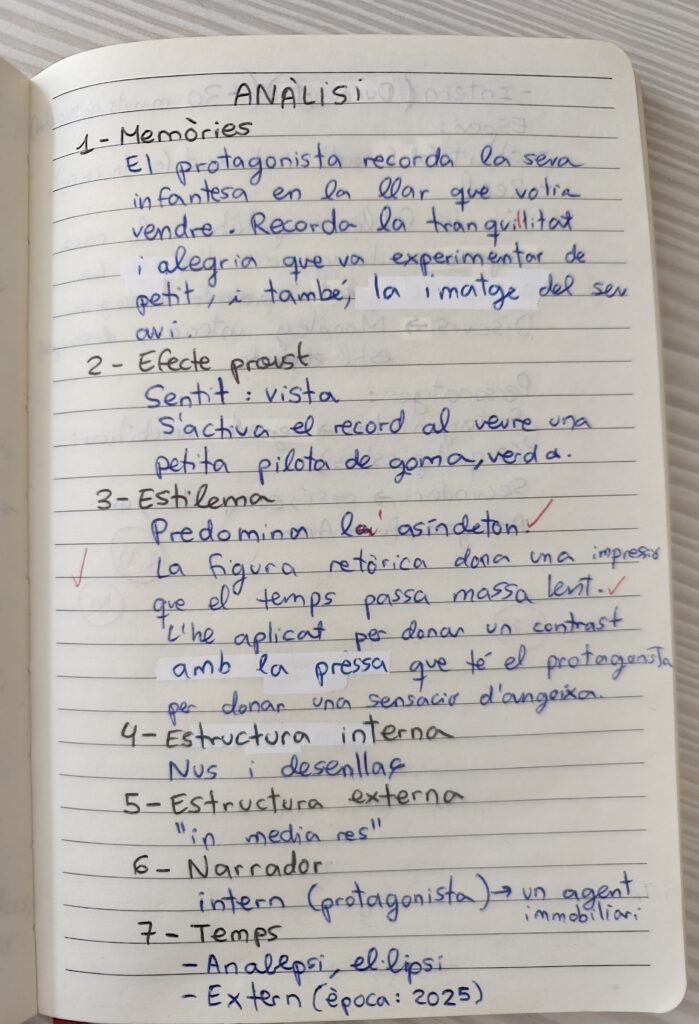 ANÀLISI
1- Memòries
El protagonista recorda la seva
infantesa en la llar que volia
vendre. Recorda la tranquillitat
i alegria que va experimentar de
petit, i també, la imatge del seu
avi.
2- Efecte proust
Sentit: vista
S'activa el record al veure una
petita pilota de goma, verda.
3- Estilema
Predomina la asíndeton.
La figura retòrica dona una impressió
que el temps passa massa lent.
L'he aplicat per donar un contrast
amb la pressa que té el protagonista
per donar una sensació d'angeixa.
4- Estructura interna
Nus i desenllaç
5- Estructura externa
"in media res"
6- Narrador
intern (protagonista) → un agent
immobiliari
7- Temps
- Analepsi, el·lipsi
- Extern (època: 2025)